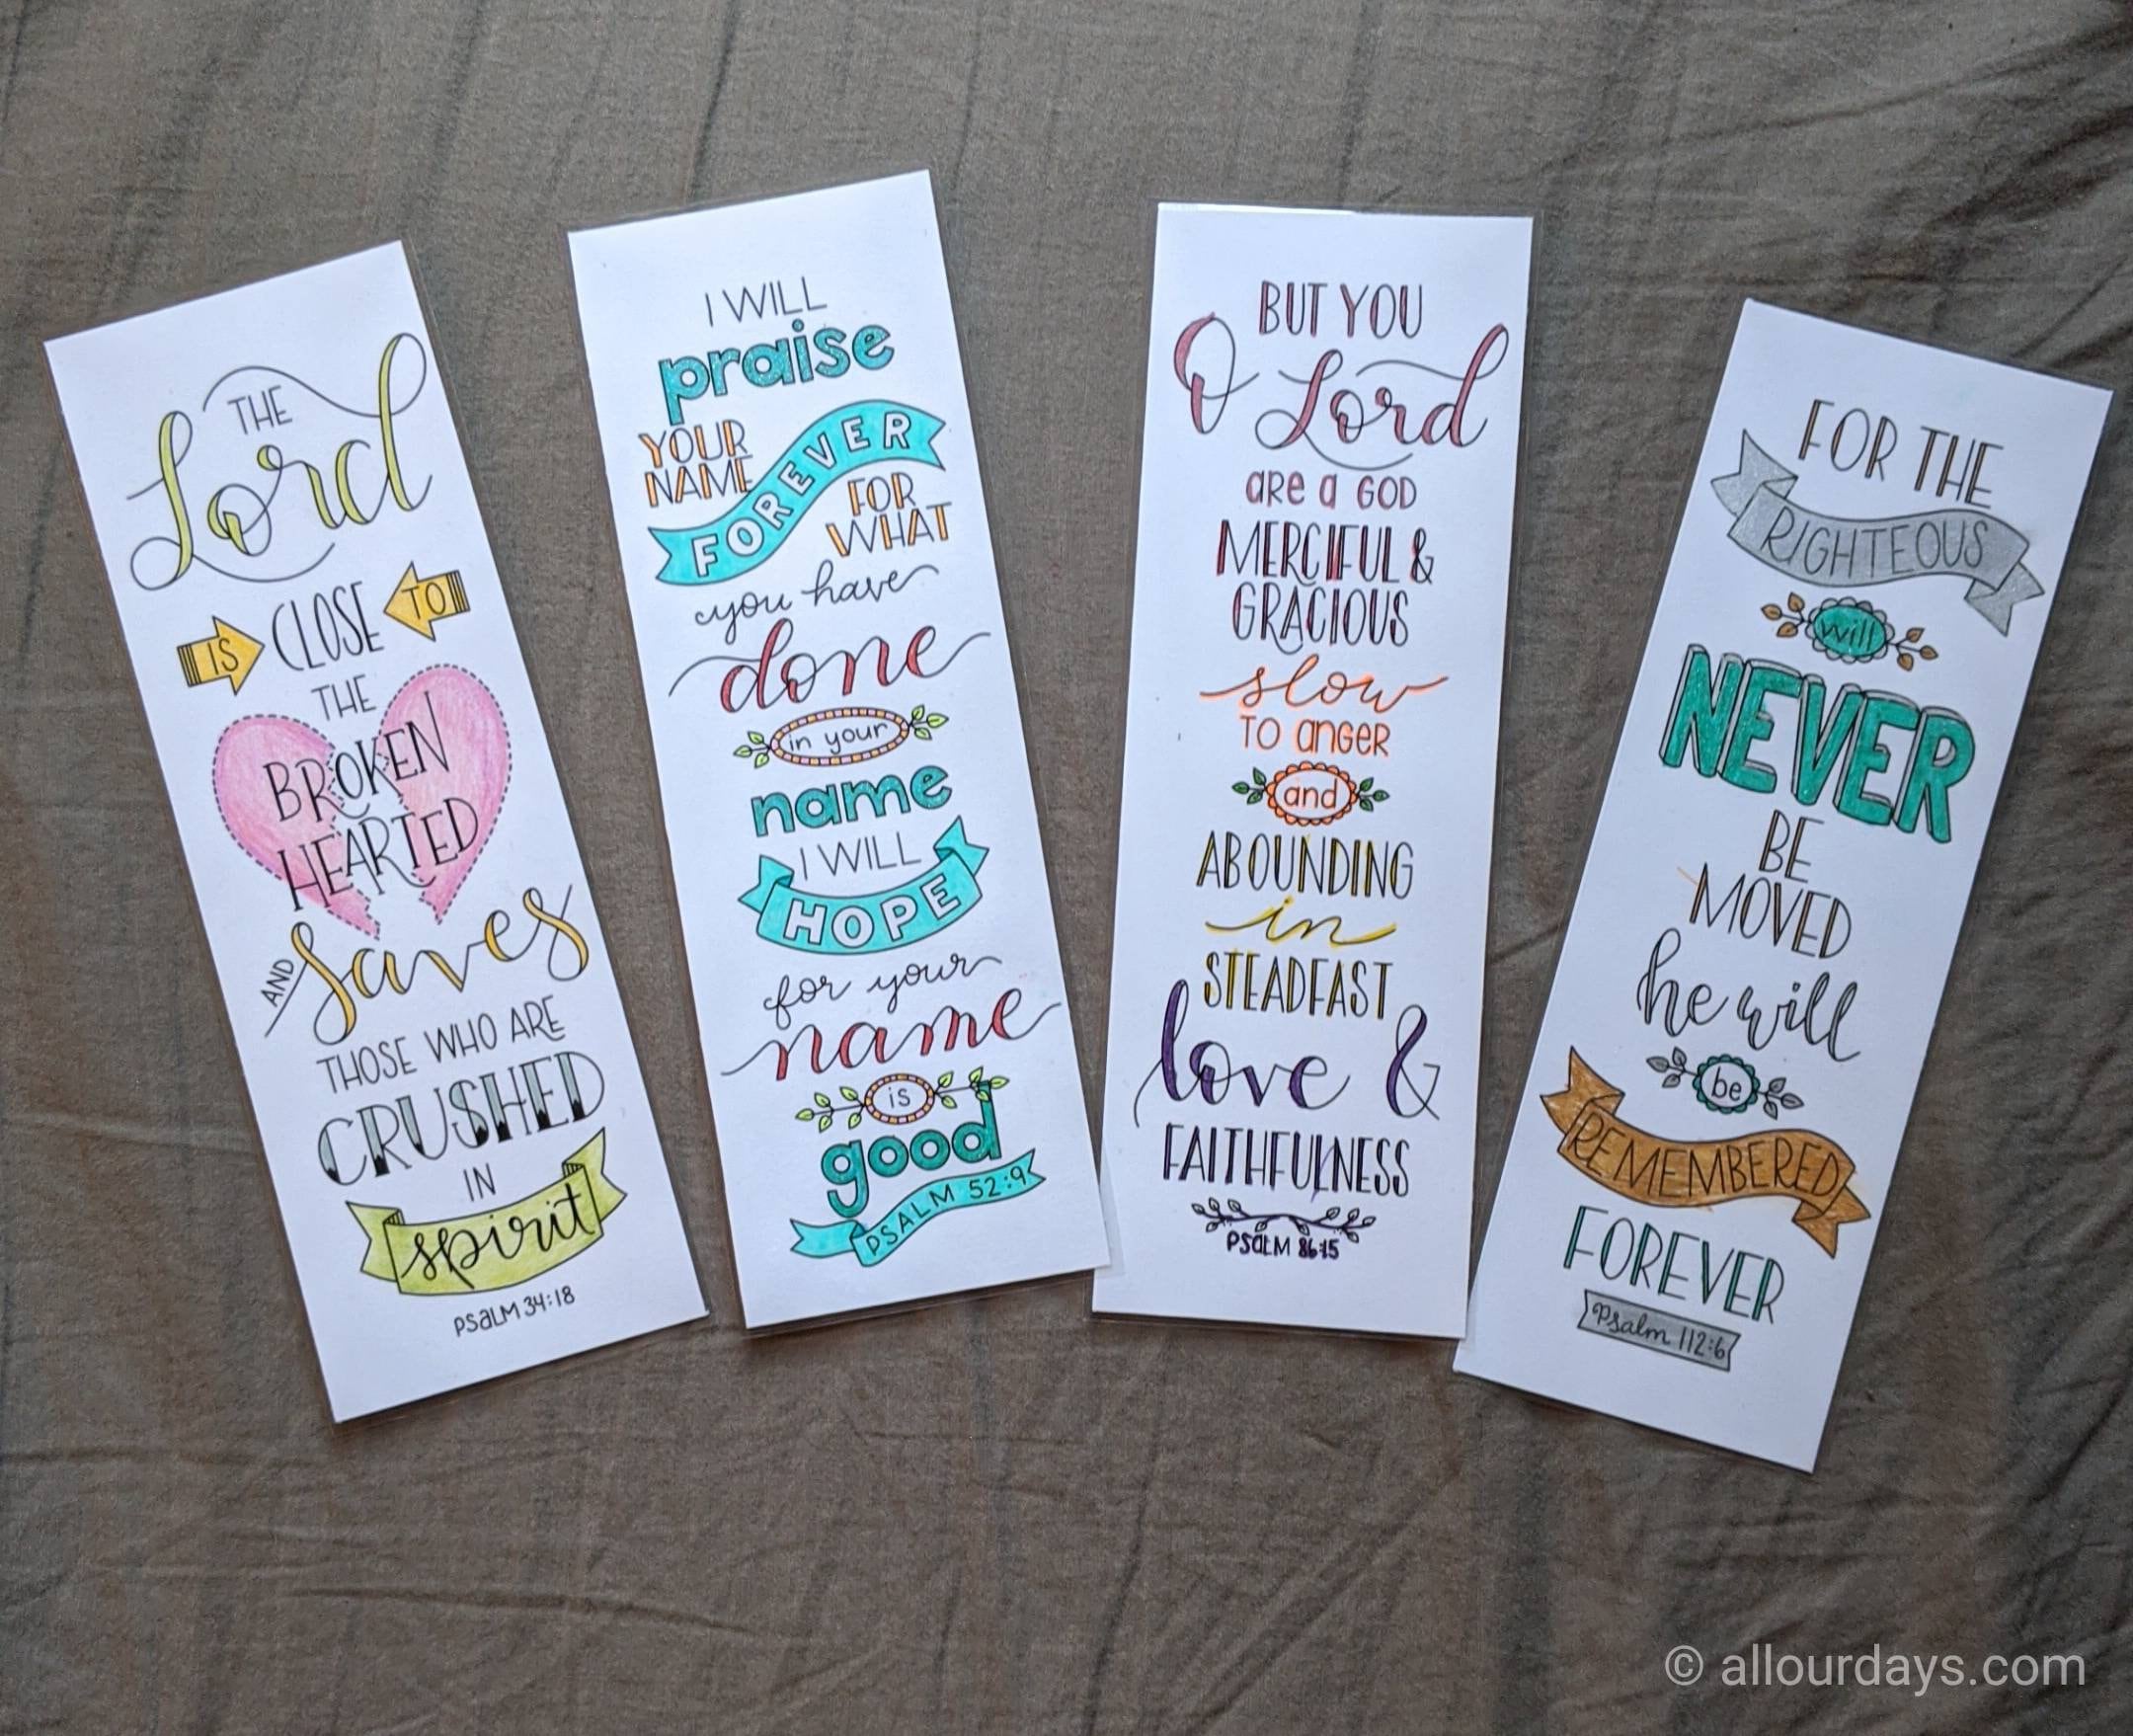 THE
Lord
IS CLOSE TO
THE
BROKEN
HEARTED
AND saves
THOSE WHO ARE
CRUSHED
IN
spirit
PSALM 34:18
I WILL
praise
YOUR
NAME
FOREVER
FOR
WHAT
you have
done
in your
name
I WILL
HOPE
for your
name
is
good
PSALM 52:9
BUT YOU
O Lord
are a GOD
MERCIFUL &
GRACIOUS
slow
TO anger
and
ABOUNDING
in
STEADFAST
love &
FAITHFULNESS
PSALM 86:15
FOR THE
RIGHTEOUS
will
NEVER
BE
MOVED
he will
be
REMEMBERED
FOREVER
Psalm 112:6
© allourdays.com